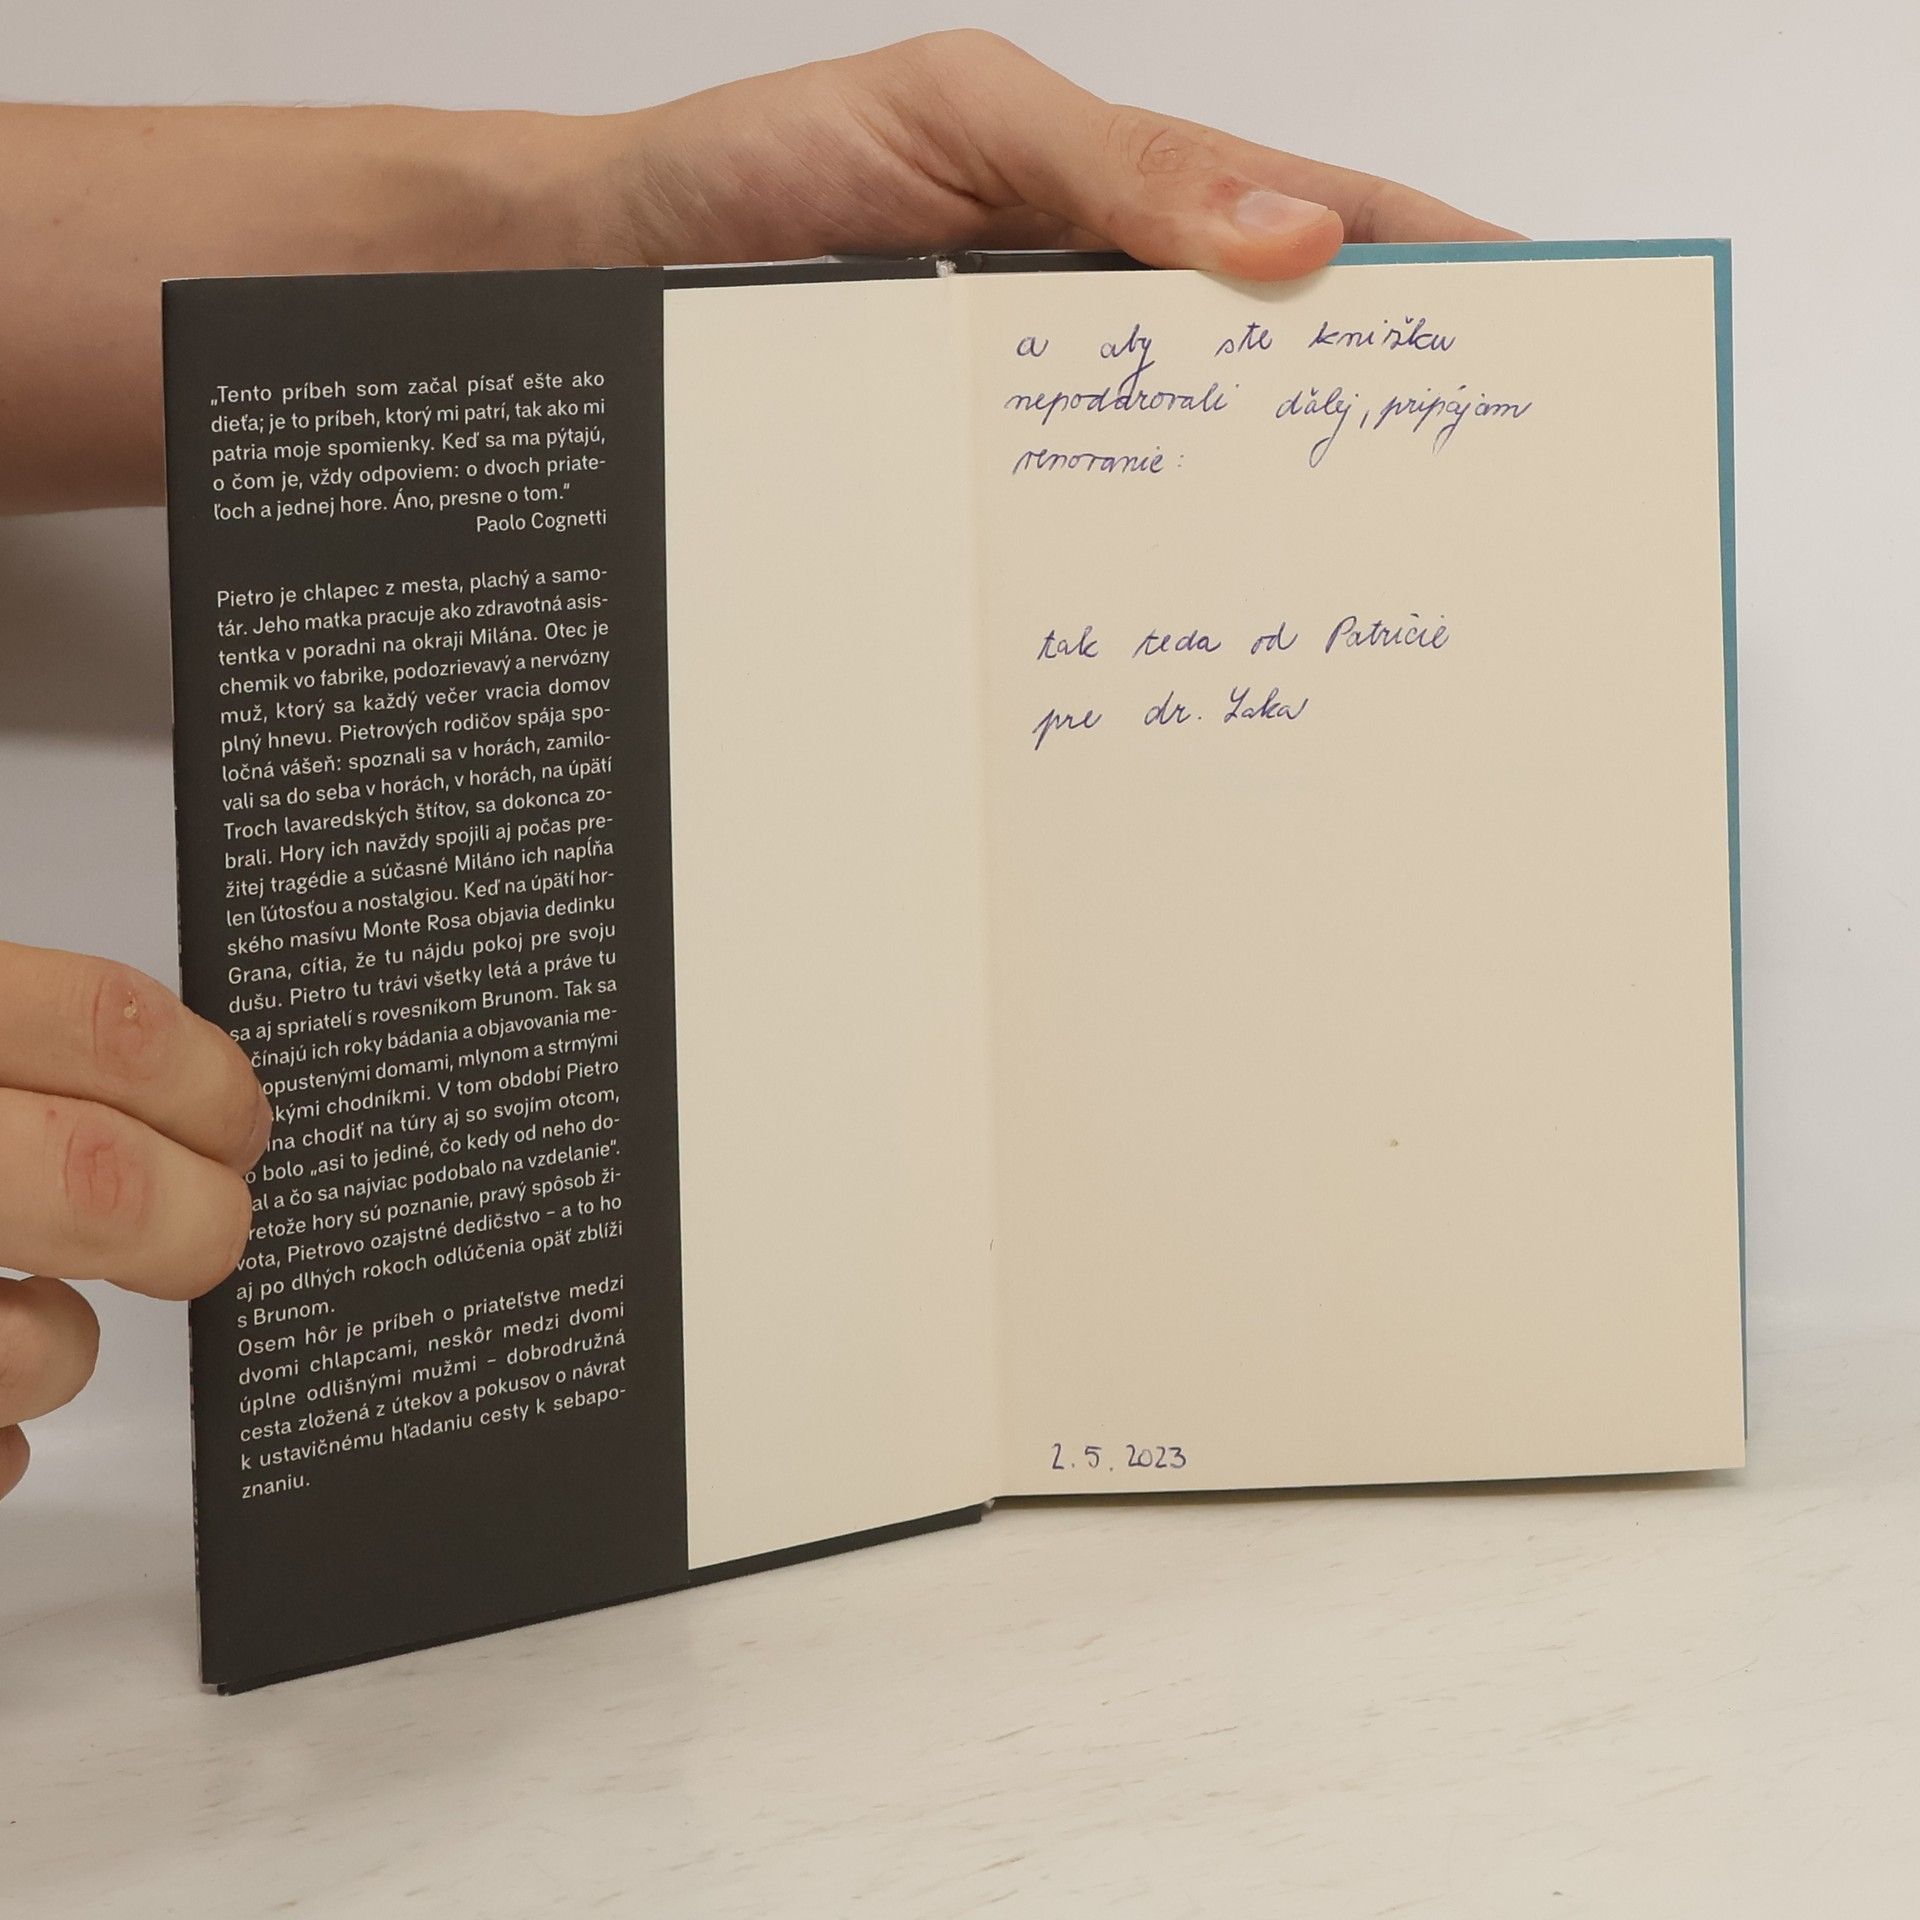 „Tento príbeh som začal písať ešte ako
dieťa; je to príbeh, ktorý mi patrí, tak ako mi
patria moje spomienky. Keď sa ma pýtajú,
o čom je, vždy odpoviem: o dvoch priate-
ľoch a jednej hore. Áno, presne o tom.“
Paolo Cognetti
Pietro je chlapec z mesta, plachý a samo-
tár. Jeho matka pracuje ako zdravotná asis-
tentka v poradni na okraji Milána. Otec je
chemik vo fabrike, podozrievavý a nervózny
muž, ktorý sa každý večer vracia domov
plný hnevu. Pietrových rodičov spája spo-
ločná vášeň: spoznali sa v horách, zamilo-
vali sa do seba v horách, v horách, na úpätí
Troch lavaredských štítov, sa dokonca zo-
brali. Hory ich navždy spojili aj počas pre-
žitej tragédie a súčasné Miláno ich napĺňa
len ľútosťou a nostalgiou. Keď na úpätí hor-
ského masívu Monte Rosa objavia dedinku
Grana, cítia, že tu nájdu pokoj pre svoju
dušu. Pietro tu trávi všetky letá a práve tu
sa aj spriatelí s rovesníkom Brunom. Tak sa
čínajú ich roky bádania a objavovania me-
opustenými domami, mlynom a strmými
kými chodníkmi. V tom období Pietro
ína chodiť na túry aj so svojím otcom,
o bolo „asi to jediné, čo kedy od neho do-
al a čo sa najviac podobalo na vzdelanie“.
retože hory sú poznanie, pravý spôsob ži-
vota, Pietrovo ozajstné dedičstvo – a to ho
aj po dlhých rokoch odlúčenia opäť zblíži
s Brunom.
Osem hôr je príbeh o priateľstve medzi
dvomi chlapcami, neskôr medzi dvomi
úplne odlišnými mužmi – dobrodružná
cesta zložená z útekov a pokusov o návrat
k ustavičnému hľadaniu cesty k sebapo-
znaniu.
a aby ste knižku
nepodarovali ďalej, pripájam
venovanie:
tak teda od Patrície
pre dr. Laka
2.5.2023